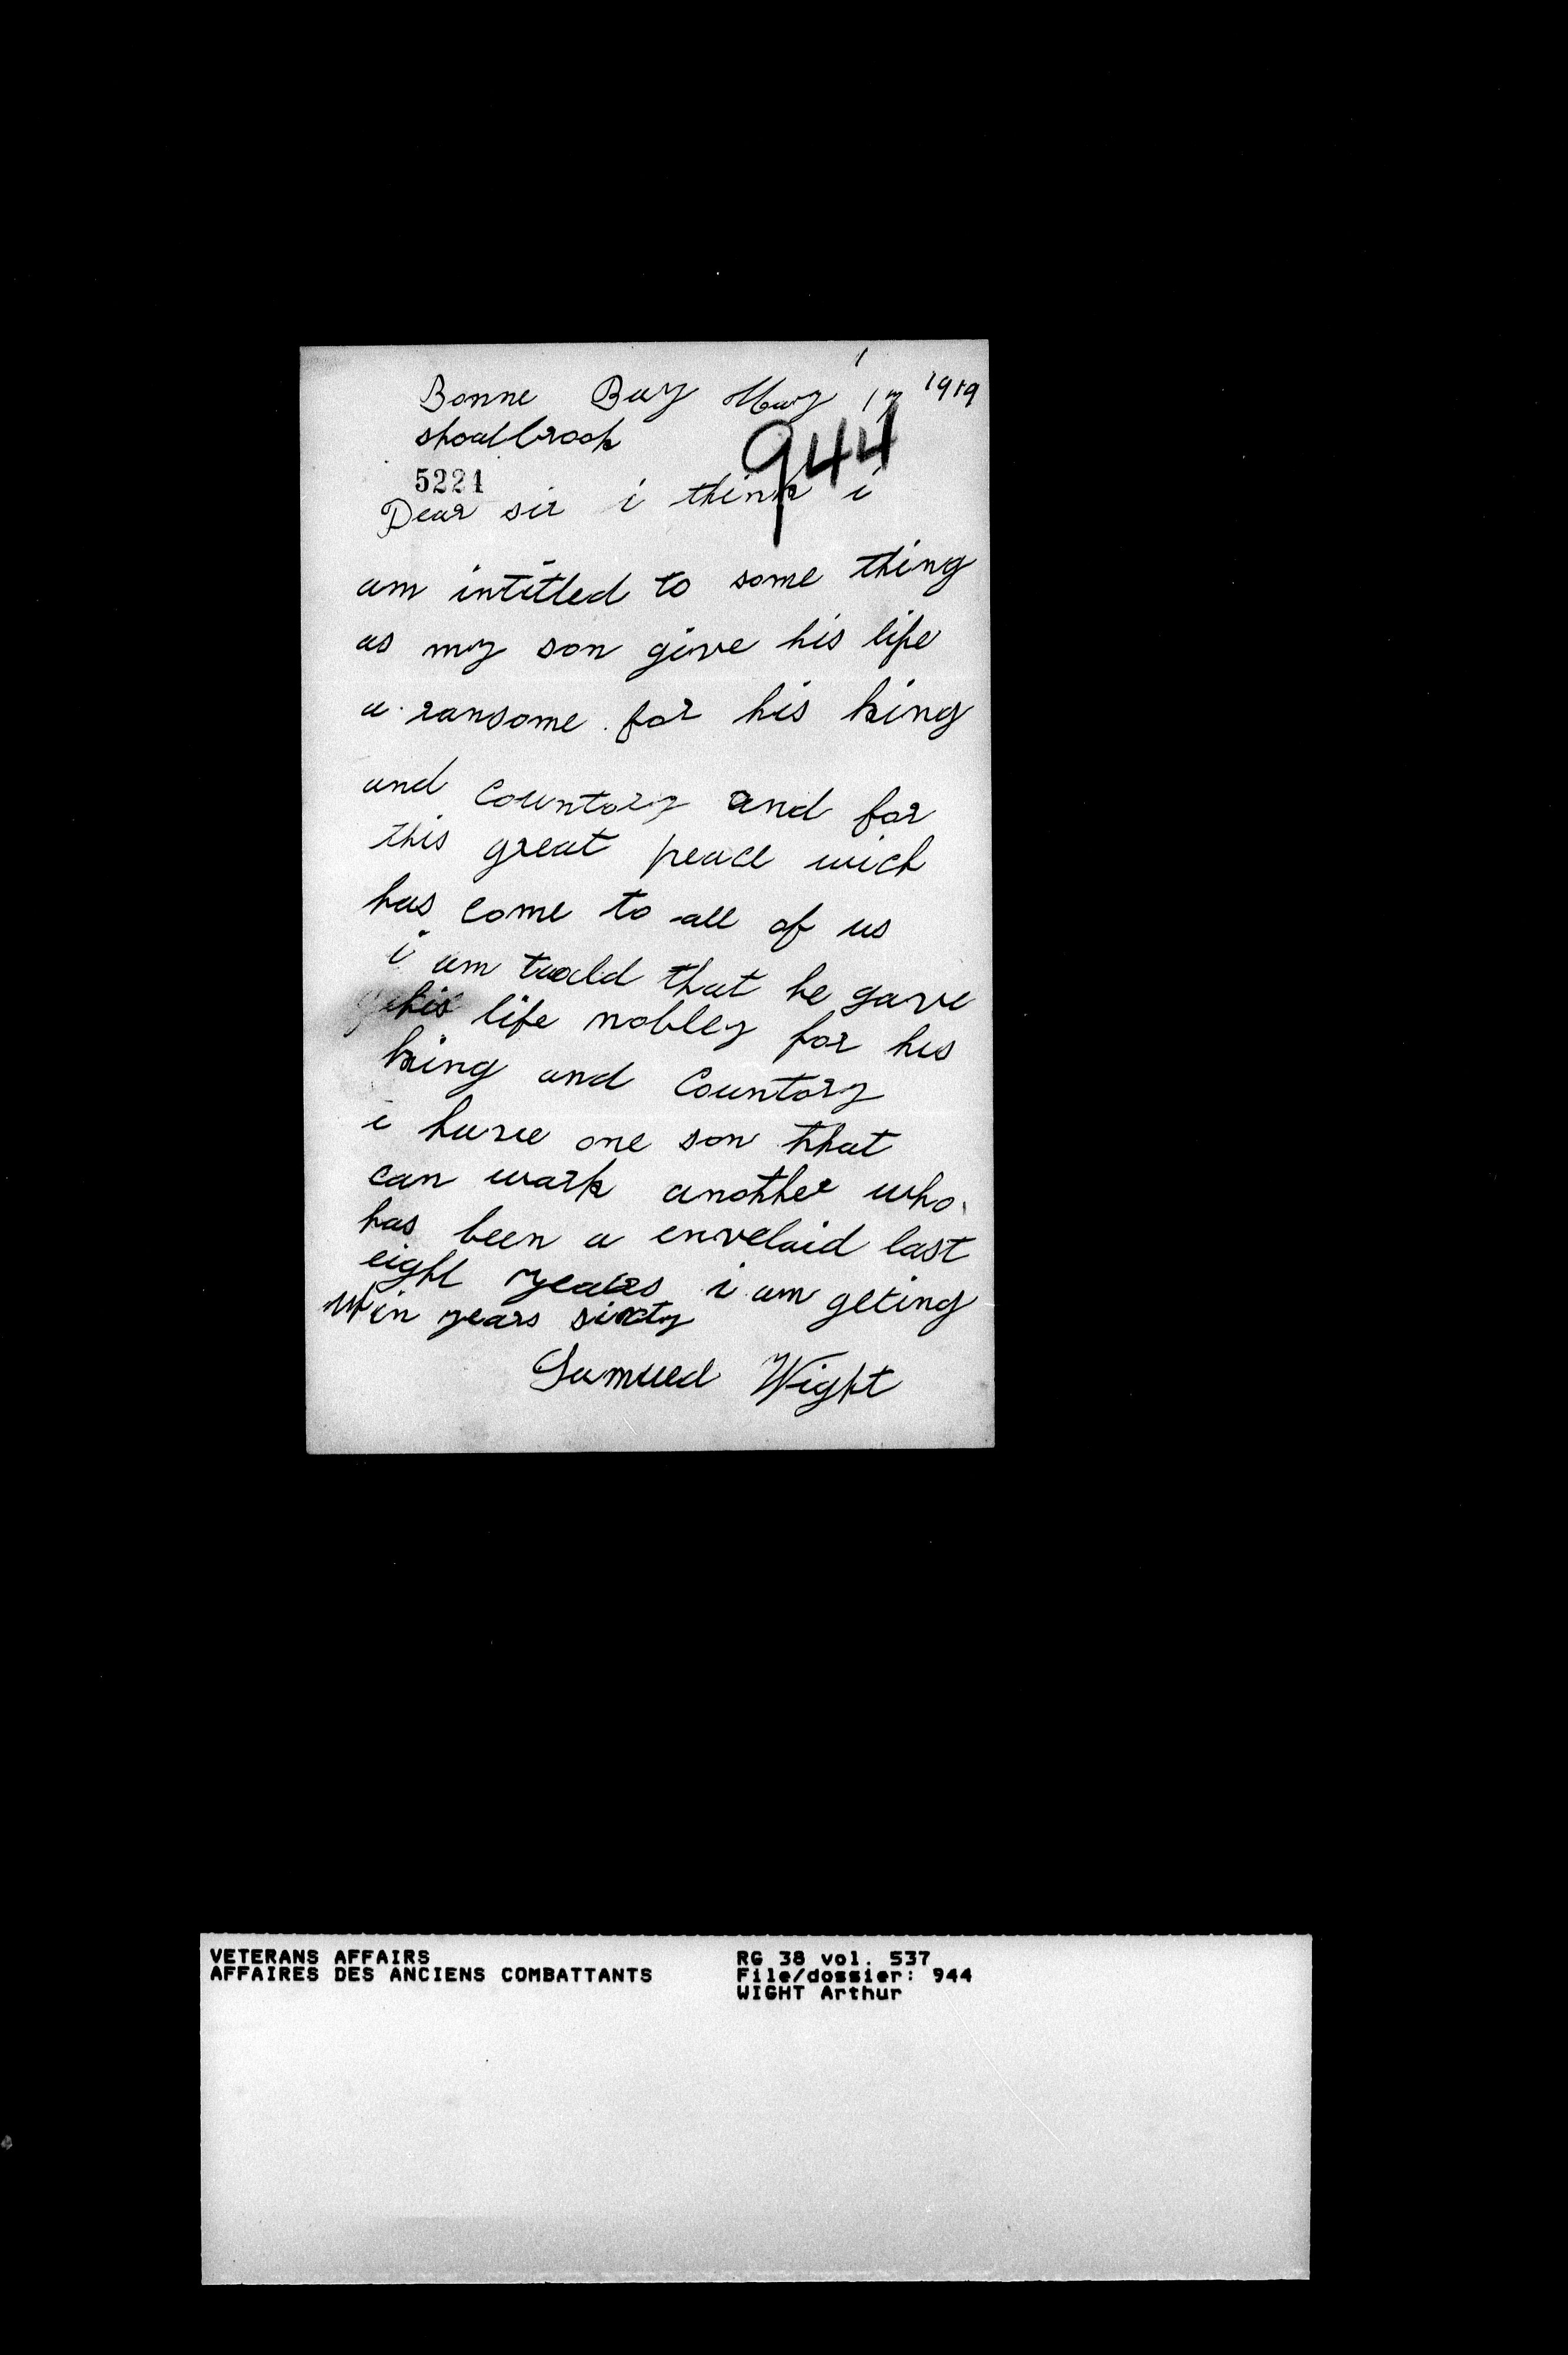 Bonne Bay May 17 1919
shoalbrook
944
5221
Dear sir i think i
am intitled to some thing
as my son give his life
a ransome for his king
and Countory and for
this great peace wich
has come to all of us
i am toald that he gave
his life nobley for his
king and Countory
i have one son that
can work another who
has been a envelaid last
eight years i am geting
up in years sixty
Samued Wight
VETERANS AFFAIRS RG 38 vol. 537
AFFAIRES DES ANCIENS COMBATTANTS File/dossier: 944
WIGHT Arthur